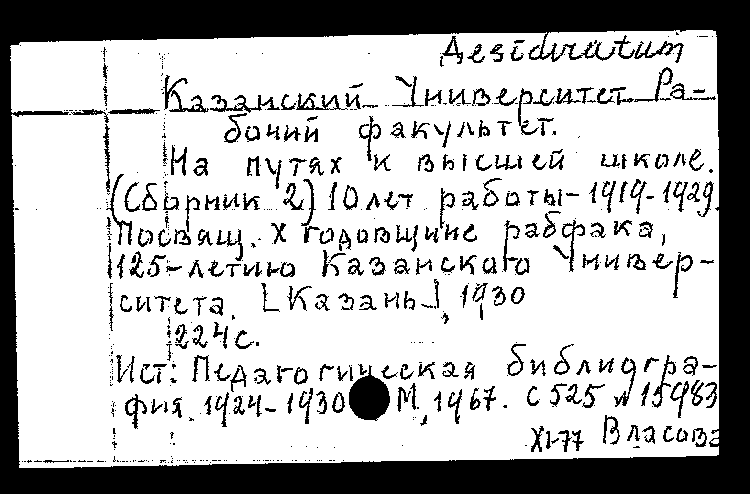 Desideratum
Казанский Университет Ра-
бочий факультет.
На путях к высшей школе.
(Сборник 2) 10 лет работы - 1919-1929.
Посвящ. X годовщине рабфака,
125-летию Казанского Универ-
ситета. [Казань], 1930
224с.
Ист: Педагогическая библиогра-
фия. 1924-1930 М, 1967. с 525 № 15983
XI-77 Власова